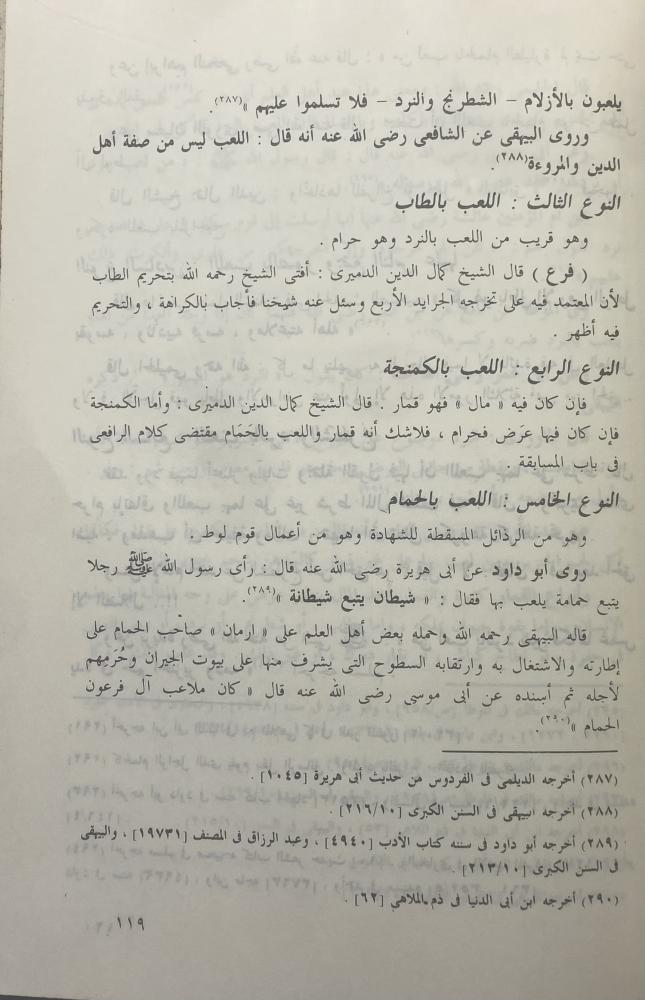 يلعبون بالأزلام – الشطرنج والنرد – فلا تسلموا عليهم »(٢٨٧).
وروى البيهقى عن الشافعى رضى الله عنه أنه قال : اللعب ليس من صفة أهل
الدين والمروءة(٢٨٨).
النوع الثالث : اللعب بالطاب
وهو قريب من اللعب بالنرد وهو حرام .
( فرع ) قال الشيخ كمال الدين الدميرى : أفتى الشيخ رحمه الله بتحريم الطاب
لأن المعتمد فيه على تخرجه الجرايد الأربع وسئل عنه شيخنا فأجاب بالكراهة ، والتحريم
فيه أظهر .
النوع الرابع : اللعب بالكمنجة
فإن كان فيه « مال » فهو قمار . قال الشيخ كمال الدين الدميرى : وأما الكمنجة
فإن كان فيها عرَض فحرام ، فلاشك أنه قمار واللعب بالحَمَام مقتضى كلام الرافعى
فى باب المسابقة .
النوع الخامس : اللعب بالحمام
وهو من الرذائل المسقطة للشهادة وهو من أعمال قوم لوط .
روى أبو داود عن أبى هريرة رضى الله عنه قال : رأى رسول الله ﷺ رجلا
يتبع حمامة يلعب بها فقال : « شيطان يتبع شيطانة »(٢٨٩).
قاله البيهقى رحمه الله وحمله بعض أهل العلم على « ارمان » صاحب الحمام على
إطارته والاشتغال به وارتقابه السطوح التى يشرف منها على بيوت الجيران وحُرَمِهم
لأجله ثم أسنده عن أبى موسى رضى الله عنه قال « كان ملاعب آل فرعون
الحمام »(٢٩٠).
(٢٨٧) أخرجه الديلمى فى الفردوس من حديث أبى هريرة [١٠٤٥] .
(٢٨٨) أخرجه البيهقى فى السنن الكبرى [٢١٦/١٠] .
(٢٨٩) أخرجه أبو داود فى سننه كتاب الأدب [٤٩٤٠] ، وعبد الرزاق فى المصنف [١٩٧٣١] ، والبيهقى
فى السنن الكبرى [٢١٣/١٠] .
(٢٩٠) أخرجه ابن أبى الدنيا فى ذم الملاهى [٦٢] .
١١٩